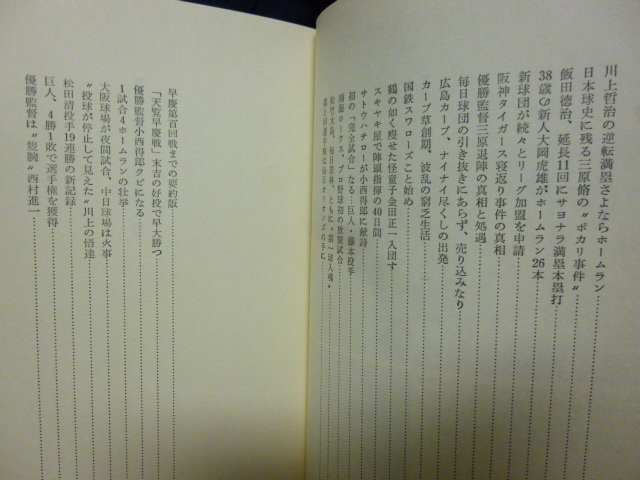 川上哲治の逆転満塁さよならホームラン
日本球史に残る三原脩の〝ポカリ事件〟
飯田徳治、延長11回にサヨナラ満塁本塁打
38歳の新人大岡虎雄がホームラン26本
新球団が続々とリーグ加盟を申請
阪神タイガース寝返り事件の真相
優勝監督三原退陣の真相と処遇
毎日球団の引き抜きにあらず、売り込みなり
広島カープ、ナイナイ尽くしの出発
カープ草創期、波乱の窮乏生活
国鉄スワローズこと始め
鶴の如く痩せた怪童子金田正一入団す
スキヤキ屋で陣頭指揮の40日間
サトウハチローが小西得郎に献詩
初の「完全試合」なる…巨人・藤本投手
南海ホークス、プロ野球初の放棄試合
早慶第百回戦までの要約版
「天覧早慶戦」末吉の好投で早大勝つ
優勝監督小西得郎クビになる
1試合4ホームランの壮挙
大阪球場が夜間試合、中日球場は火事
〝投球が停止して見えた〟川上の悟達
松田清投手19連勝の新記録
巨人、4勝1敗で選手権を獲得
優勝監督は〝隻腕〟西村進一